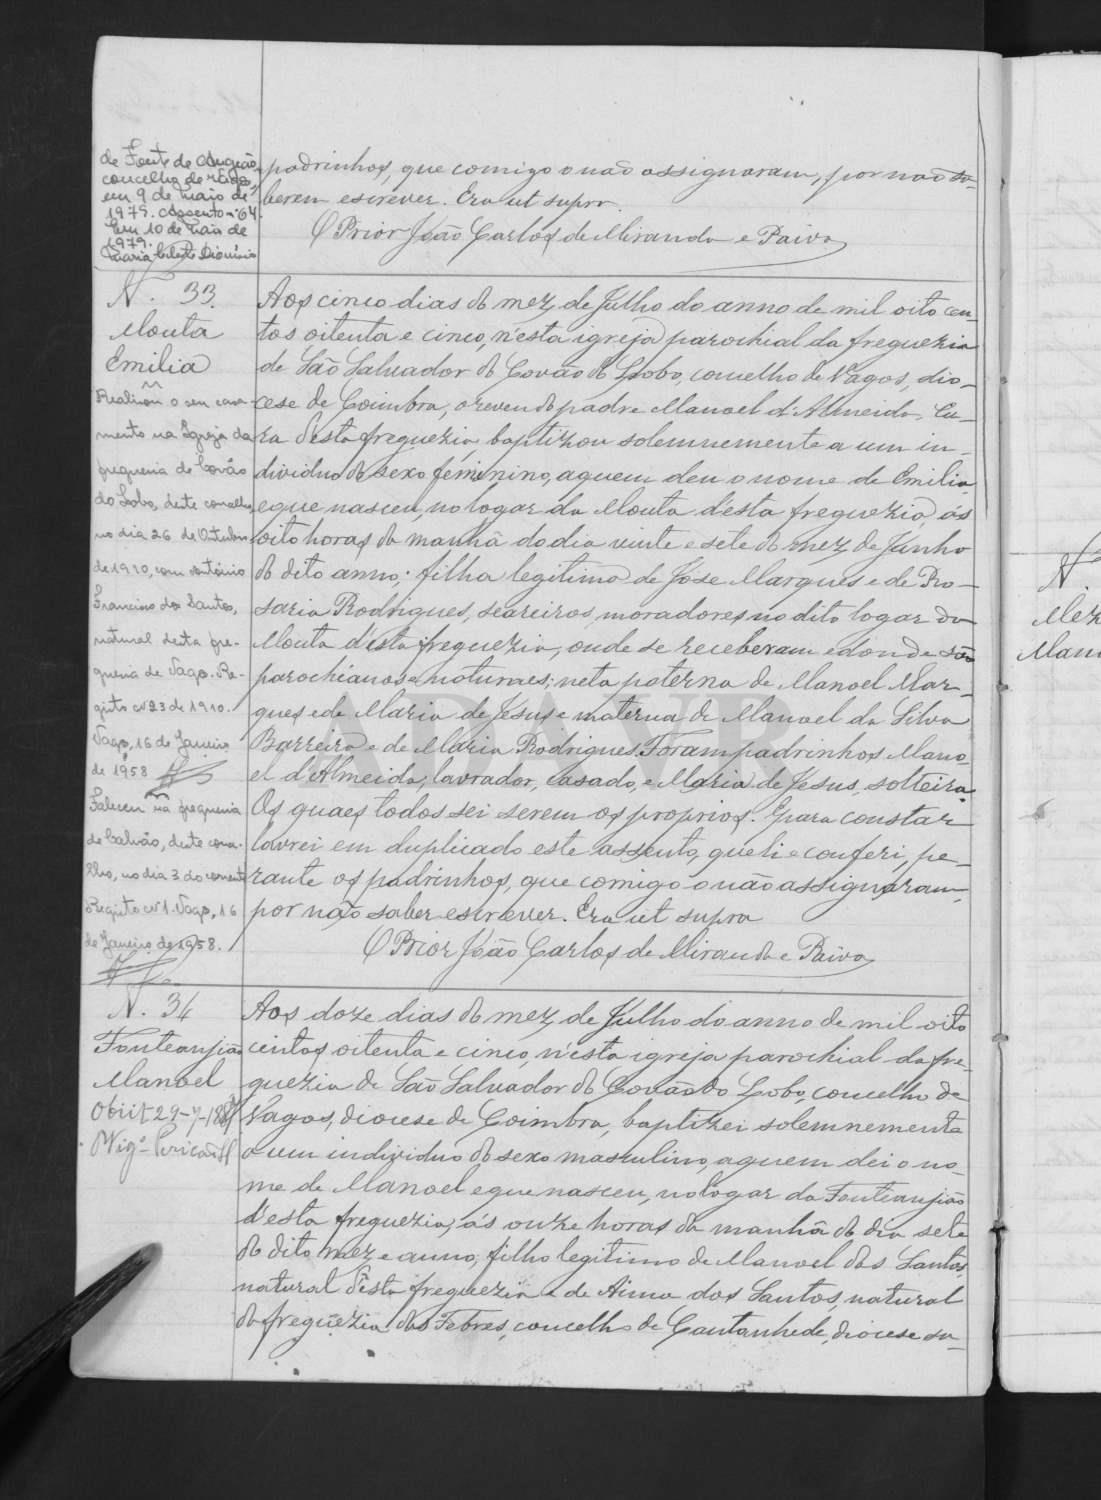 de Fonte de Angeão,
concelho de Vagos,
em 9 de Maio de
1979. Assento nº 64.
Em 10 de Maio de
1979.
Maria Celeste Dionísio
padrinhos, que comigo o não assignaram, por não sa-
berem escrever. Era ut supra.
O Prior João Carlos de Miranda e Paiva
N. 33.
Mouta
Emilia
Realizou o seu casa-
mento na Igreja da
freguesia de Covão
do Lobo, deste concelho,
no dia 26 de Outubro
de 1910, com António
Francisco dos Santos,
natural desta fre-
guesia de Vagos. Re-
gisto nº 23 de 1910.
Vagos, 16 de Janeiro
de 1958
Faleceu na freguesia
de Calvão, deste conce-
lho, no dia 3 do corrente
Registo nº 1. Vagos, 16
de Janeiro de 1958.
Aos cinco dias do mez de Julho do anno de mil oito cen-
tos oitenta e cinco, n'esta igreja parochial da freguezia
de São Salvador do Covão do Lobo, concelho de Vagos, dio-
cese de Coimbra, o reverendo padre Manoel d'Almeida, Cu-
ra d'esta freguezia, baptizou solemnemente a um in-
dividuo do sexo feminino, a quem deu o nome de Emilia
e que nasceu, no logar da Mouta d'esta freguezia, ás
oito horas da manhã do dia vinte e sete do mez de Junho
do dito anno; filha legitima de José Marques e de Ro-
saria Rodrigues, seareiros, moradores no dito logar da
Mouta d'esta freguezia, onde se receberam e donde são
parochianos e naturaes; neta paterna de Manoel Mar-
ques e de Maria de Jesus e materna de Manoel da Silva
Barreira e de Maria Rodrigues. Foram padrinhos Mano-
el d'Almeida, lavrador, casado, e Maria de Jesus, solteira.
Os quaes todos sei serem os proprios. E para constar
lavrei em duplicado este assento, que li e conferi, pe-
rante os padrinhos, que comigo o não assignaram,
por não saber escrever. Era ut supra
O Prior João Carlos de Miranda e Paiva
N. 34
Fonteanjião
Manoel
Obiit 29-7-188
Aos doze dias do mez de Julho do anno de mil oito
centos oitenta e cinco, n'esta igreja parochial da fre-
guezia de São Salvador do Covão do Lobo, concelho de
Vagos, diocese de Coimbra, baptizei solemnemente
a um individuo do sexo masculino, a quem dei o no-
me de Manoel e que nasceu, no logar da Fonteanjião
d'esta freguezia, ás onze horas da manhã do dia sete
do dito mez e anno, filho legitimo de Manoel dos Santos,
natural d'esta freguezia e de Anna dos Santos, natural
da freguezia das Febres, concelho de Cantanhede, diocese su-
N.
Mez
Man
ADAVR